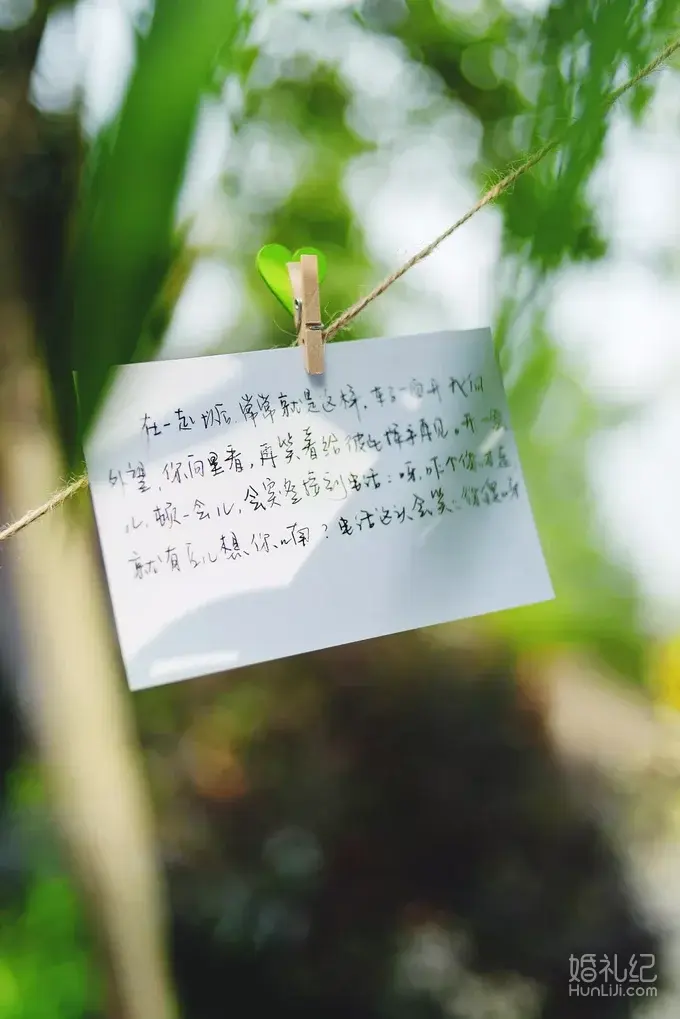 在一起以后,常常就是这样,车子一向开我们
外望,你向里看,再笑着给彼此挥手再见。开一会
儿,顿一会儿,会突然接到电话:呀,咋个你不在
就有点儿想你啊?电话这头会笑:傻呀
婚礼纪
HunLiJi.com